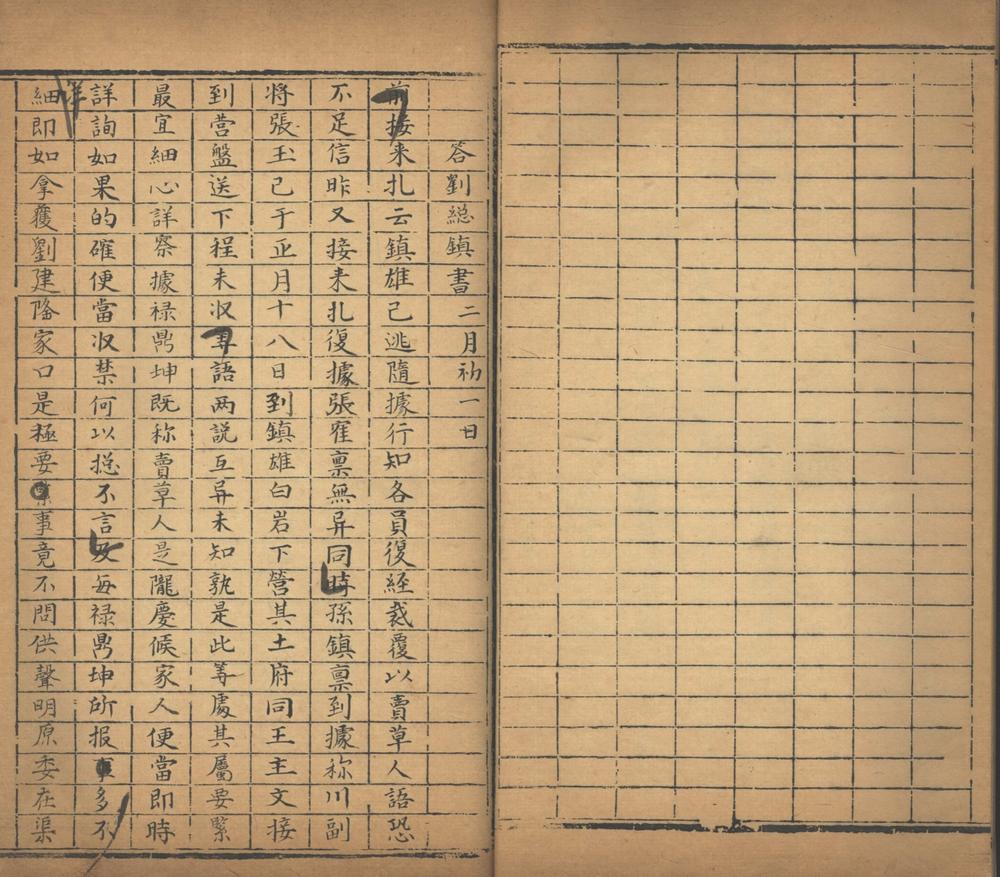 答劉總鎮書二月初一日
前接来扎云鎮雄已逃隨據行知各員復経裁覆以賣草人語恐
不足信昨又接来扎復據張寉禀無异同時孫鎮禀到據称川副
将張玉已于正月十八日到鎮雄白岩下營其土府同王主文接
到营盤送下程未収弄語两説互异未知孰是此等處其屬要緊
最宜細心詳察據禄鼎坤既称賣草人是隴慶候家人便當即時
詳詢如果的確便當収禁何以揔不言及每禄鼎坤所报事多不
詳細即如拿獲劉建隆家口是極要緊事竟不問供聲明原委在渠